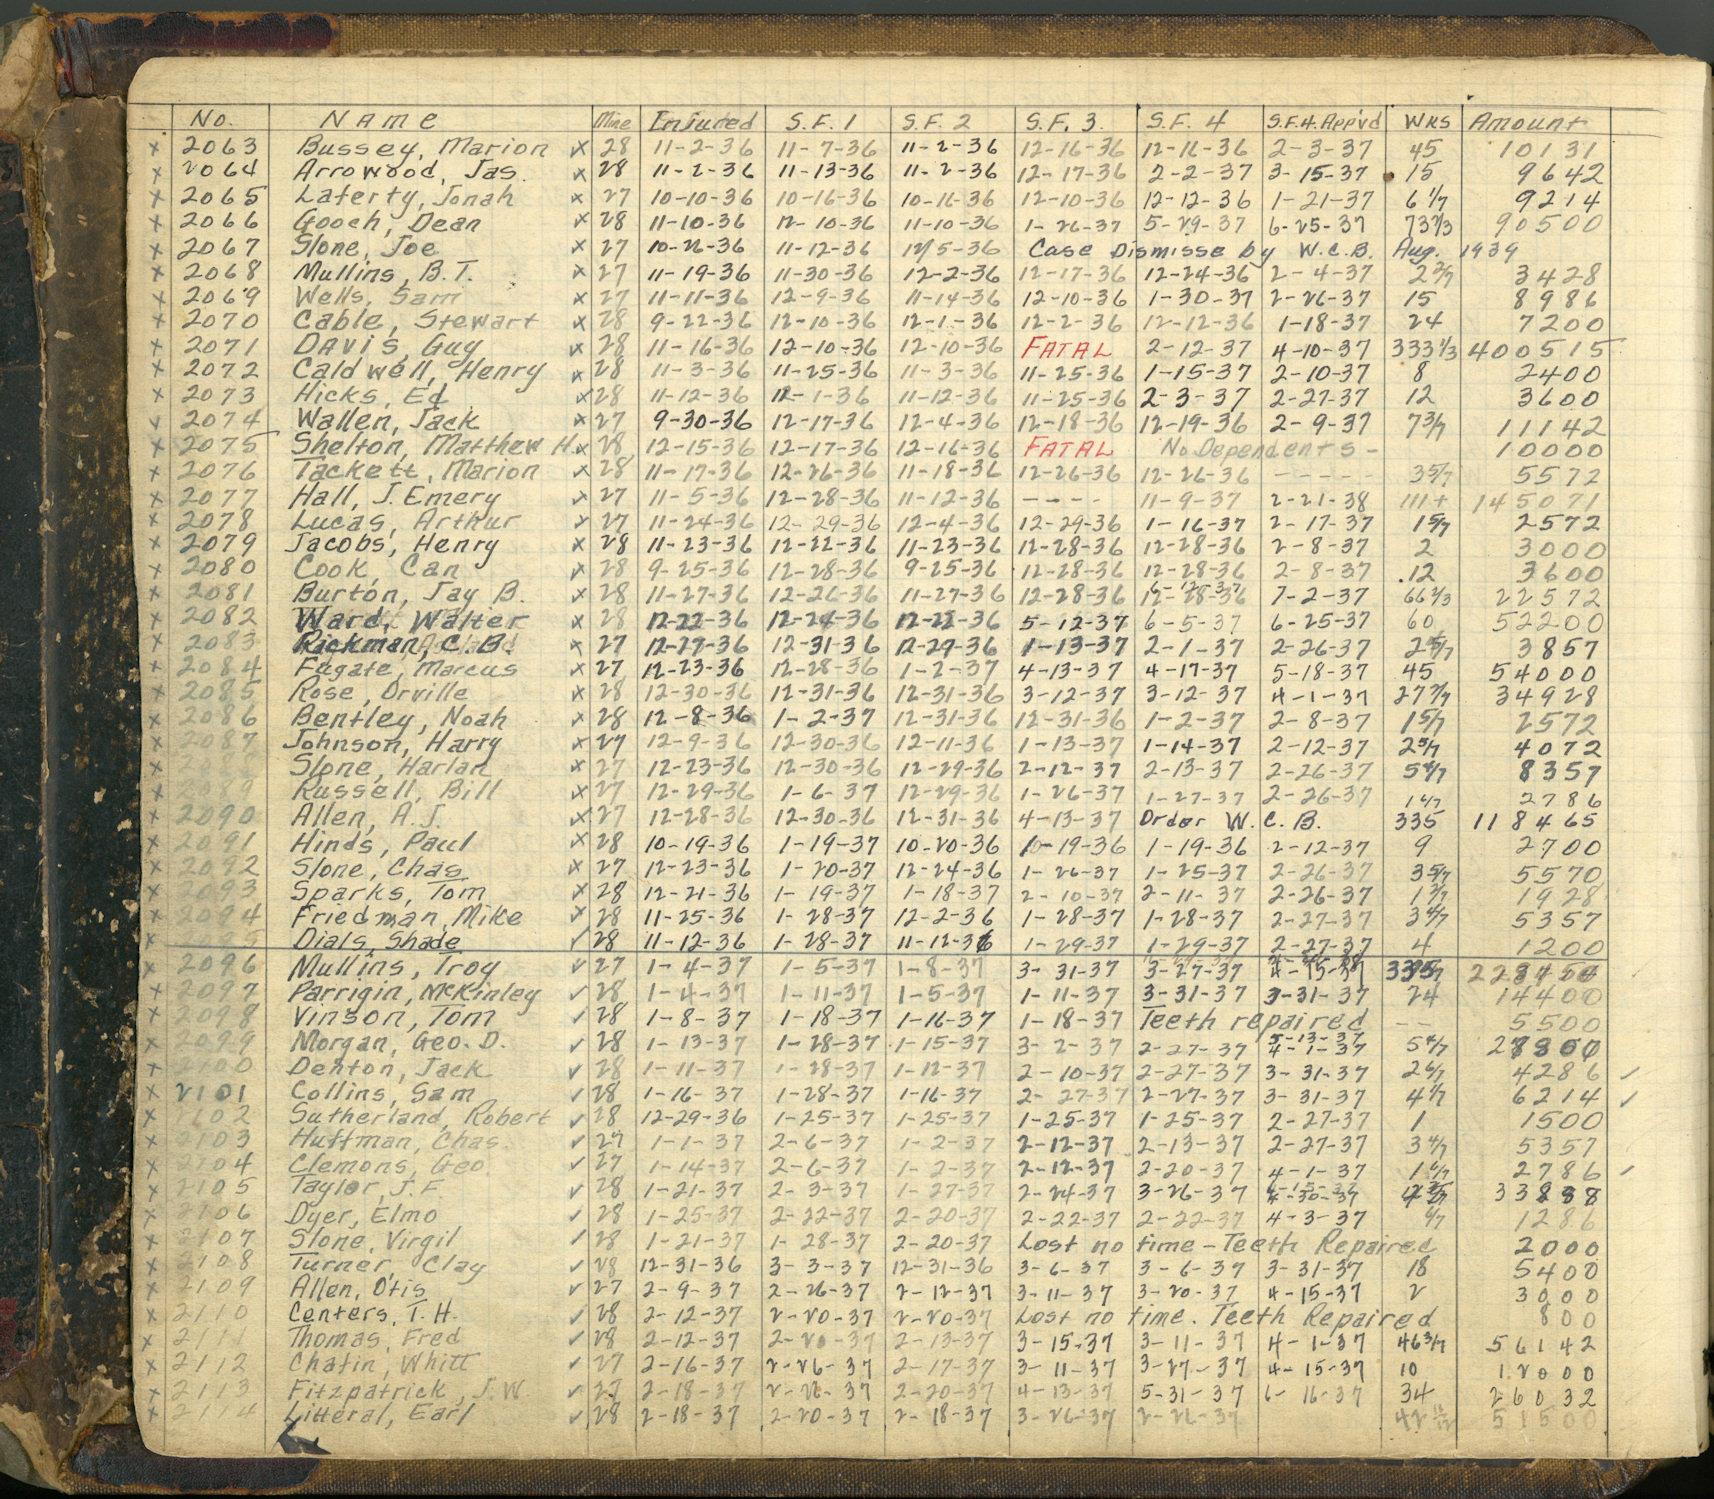 No. Name Mine Injured S.F. 1 S.F. 2 S.F. 3. S.F. 4 S.F.4.App'vd WKS Amount
x 2063 Bussey, Marion x 28 11-2-36 11-7-36 11-2-36 12-16-36 12-16-36 2-3-37 45 10131
x 2064 Arrowood, Jas. x 28 11-2-36 11-13-36 11-2-36 12-17-36 2-2-37 3-15-37 15 9642
x 2065 Laferty, Jonah x 27 10-10-36 10-16-36 10-16-36 12-10-36 12-12-36 1-21-37 6 1/7 9214
x 2066 Gooch, Dean x 28 11-10-36 12-10-36 11-10-36 1-26-37 5-29-37 6-25-37 73 2/3 90500
x 2067 Slone, Joe x 27 10-26-36 11-12-36 12/5-36 Case Dismisse by W.C.B. Aug. 1939
x 2068 Mullins, B.T. x 27 11-19-36 11-30-36 12-2-36 12-17-36 12-24-36 2-4-37 2 2/7 3428
x 2069 Wells, Sam x 27 11-11-36 12-9-36 11-14-36 12-10-36 1-30-37 2-26-37 15 8986
x 2070 Cable, Stewart x 28 9-22-36 12-10-36 12-1-36 12-2-36 12-12-36 1-18-37 24 7200
x 2071 Davis, Guy x 28 11-16-36 12-10-36 12-10-36 FATAL 2-12-37 4-10-37 333 1/3 400515
x 2072 Caldwell, Henry x 28 11-3-36 11-25-36 11-3-36 11-25-36 1-15-37 2-10-37 8 2400
x 2073 Hicks, Ed x 28 11-12-36 12-1-36 11-12-36 11-25-36 2-3-37 2-27-37 12 3600
x 2074 Wallen, Jack x 27 9-30-36 12-17-36 12-4-36 12-18-36 12-19-36 2-9-37 7 3/7 11142
x 2075 Shelton, Matthew H. x 28 12-15-36 12-17-36 12-16-36 FATAL No Dependents - 10000
x 2076 Tackett, Marion x 28 11-17-36 12-26-36 11-18-36 12-26-36 12-26-36 - - - - - 3 5/7 5572
x 2077 Hall, J. Emery x 27 11-5-36 12-28-36 11-12-36 - - - - 11-9-37 2-21-38 111+ 145071
x 2078 Lucas, Arthur x 27 11-24-36 12-29-36 12-4-36 12-29-36 1-16-37 2-17-37 1 5/7 2572
x 2079 Jacobs, Henry x 28 11-23-36 12-22-36 11-23-36 12-28-36 12-28-36 2-8-37 2 3000
x 2080 Cook, Can x 28 9-25-36 12-28-36 9-25-36 12-28-36 12-28-36 2-8-37 .12 3600
x 2081 Burton, Jay B. x 28 11-27-36 12-26-36 11-27-36 12-28-36 12-28-36 7-2-37 66 1/3 22572
x 2082 Ward, Walter x 28 12-22-36 12-24-36 12-22-36 5-12-37 6-5-37 6-25-37 60 52200
x 2083 Rickman, C.B. x 27 12-27-36 12-31-36 12-29-36 1-13-37 2-1-37 2-26-37 3857
x 2084 Fugate, Marcus x 27 12-23-36 12-28-36 1-2-37 4-13-37 4-17-37 5-18-37 45 54000
x 2085 Rose, Orville x 28 12-30-36 12-31-36 12-31-36 3-12-37 3-12-37 4-1-37 34928
x 2086 Bentley, Noah x 28 12-8-36 1-2-37 12-31-36 12-31-36 1-2-37 2-8-37 1 5/7 2572
x 2087 Johnson, Harry x 27 12-9-36 12-30-36 12-11-36 1-13-37 1-14-37 2-12-37 2 5/7 4072
x Slone, Harlan x 27 12-23-36 12-30-36 12-29-36 2-12-37 2-13-37 2-26-37 5 4/7 8357
x 2089 Russell, Bill x 27 12-29-36 1-6-37 12-29-36 1-26-37 1-27-37 2-26-37 1 6/7 2786
x 2090 Allen, A.J. x 27 12-28-36 12-30-36 12-31-36 4-13-37 Order W.C.B. 335 118465
x 2091 Hinds, Paul x 28 10-19-36 1-19-37 10-20-36 10-19-36 1-19-36 2-12-37 9 2700
x 2092 Slone, Chas x 27 12-23-36 1-20-37 12-24-36 1-26-37 1-25-37 2-26-37 3 5/7 5570
x 2093 Sparks, Tom x 28 12-21-36 1-19-37 1-18-37 2-10-37 2-11-37 2-26-37 1 2/7 1928
x 2094 Friedman, Mike x 28 11-25-36 1-28-37 12-2-36 1-28-37 1-28-37 2-27-37 3 4/7 5357
x Dials, Shade ✓ 28 11-12-36 1-28-37 11-12-36 1-29-37 1-29-37 2-27-37 4 1200
x 2096 Mullins, Troy ✓ 27 1-4-37 1-5-37 1-8-37 3-31-37 3-27-37
x 2097 Parrigin, McKinley ✓ 28 1-4-37 1-11-37 1-5-37 1-11-37 3-31-37 3-31-37 24 14400
x 2098 Vinson, Tom ✓ 28 1-8-37 1-18-37 1-16-37 1-18-37 Teeth repaired -- 5500
x 2099 Morgan, Geo. D. ✓ 28 1-13-37 1-28-37 1-15-37 3-2-37 2-27-37 5-13-37 4-1-37 5 4/7
x 2100 Denton, Jack ✓ 28 1-11-37 1-28-37 1-12-37 2-10-37 2-27-37 3-31-37 2 6/7 4286 ✓
x 2101 Collins, Sam ✓ 28 1-16-37 1-28-37 1-16-37 2-27-37 2-27-37 3-31-37 4 1/7 6214 ✓
x 2102 Sutherland, Robert ✓ 28 12-29-36 1-25-37 1-25-37 1-25-37 1-25-37 2-27-37 1 1500
x 2103 Huffman, Chas. ✓ 27 1-1-37 2-6-37 1-2-37 2-12-37 2-13-37 2-27-37 3 4/7 5357
x 2104 Clemons, Geo. ✓ 27 1-14-37 2-6-37 1-2-37 2-12-37 2-20-37 4-1-37 1 6/7 2786 ✓
x 2105 Taylor, J.F. ✓ 28 1-21-37 2-3-37 1-27-37 2-24-37 3-26-37
x 2106 Dyer, Elmo ✓ 28 1-25-37 2-22-37 2-20-37 2-22-37 2-22-37 4-3-37 6/7 1286
x 2107 Slone, Virgil ✓ 28 1-21-37 1-28-37 2-20-37 Lost no time - Teeth Repaired 2000
x 2108 Turner, Clay ✓ 28 12-31-36 3-3-37 12-31-36 3-6-37 3-6-37 3-31-37 18 5400
x 2109 Allen, Otis ✓ 27 2-9-37 2-26-37 2-12-37 3-11-37 3-20-37 4-15-37 2 3000
x 2110 Centers, T.H. ✓ 28 2-12-37 2-20-37 2-20-37 Lost no time. Teeth Repaired 800
x 2111 Thomas, Fred ✓ 28 2-12-37 2-20-37 2-13-37 3-15-37 3-11-37 4-1-37 46 3/7 56142
x 2112 Chafin, Whitt ✓ 27 2-16-37 2-26-37 2-17-37 3-11-37 3-27-37 4-15-37 10 12000
x 2113 Fitzpatrick, J.W. ✓ 27 2-18-37 2-26-37 2-20-37 4-13-37 5-31-37 6-16-37 34 26032
x 2114 Litteral, Earl ✓ 28 2-18-37 2-20-37 2-18-37 3-26-37 2-26-37 51500